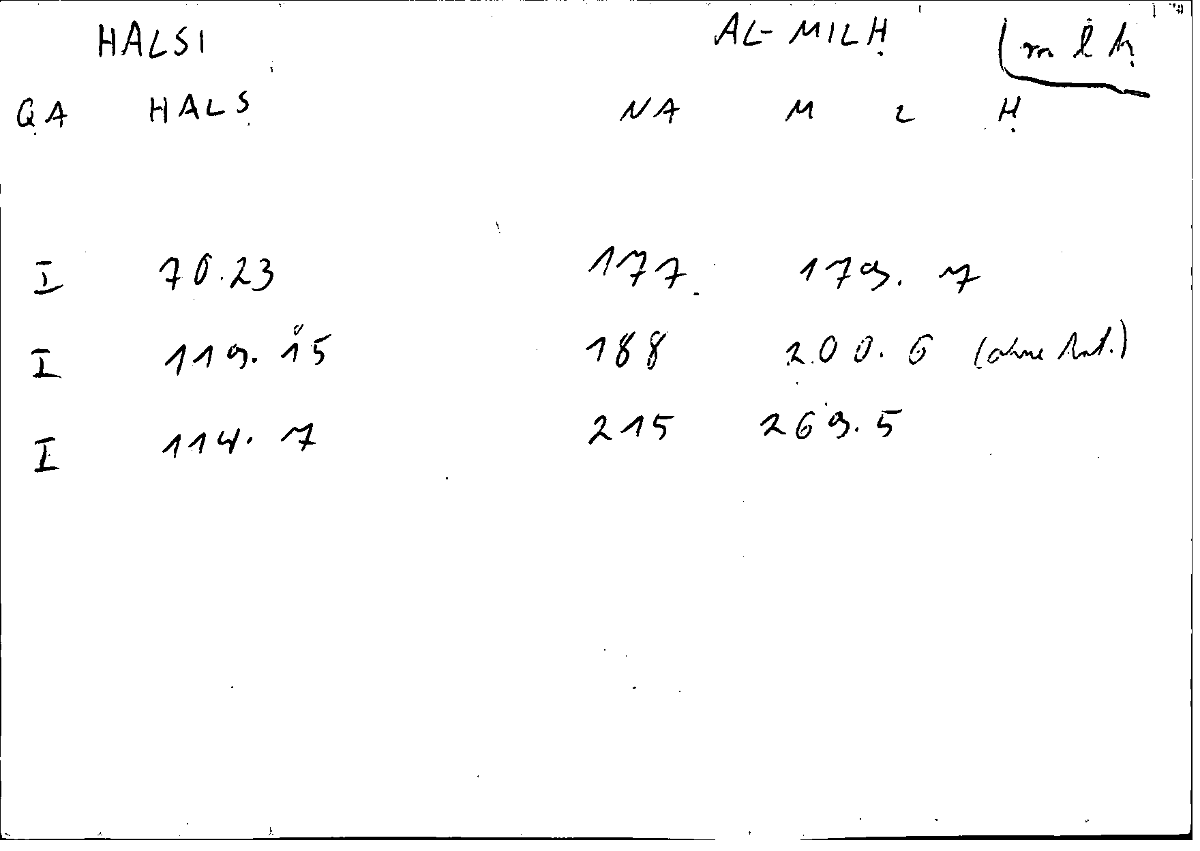 HALSI AL-MILḤ mlḥ
QA HALS NA M L Ḥ
I 70.23 177 179.7
I 119.15 188 200.6 (ohne Art.)
I 114.7 215 269.5